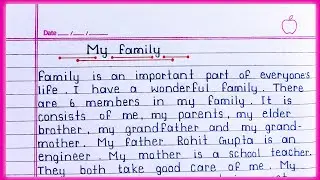 Date __/__/__
My family
family is an important part of everyones
life. I have a wonderful family. There
are 6 members in my family. It is
consists of me, my parents, my elder
brother, my grandfather and my grand-
mother. My father Rohit Gupta is an
engineer. My mother is a school teacher.
They both take good care of me. My